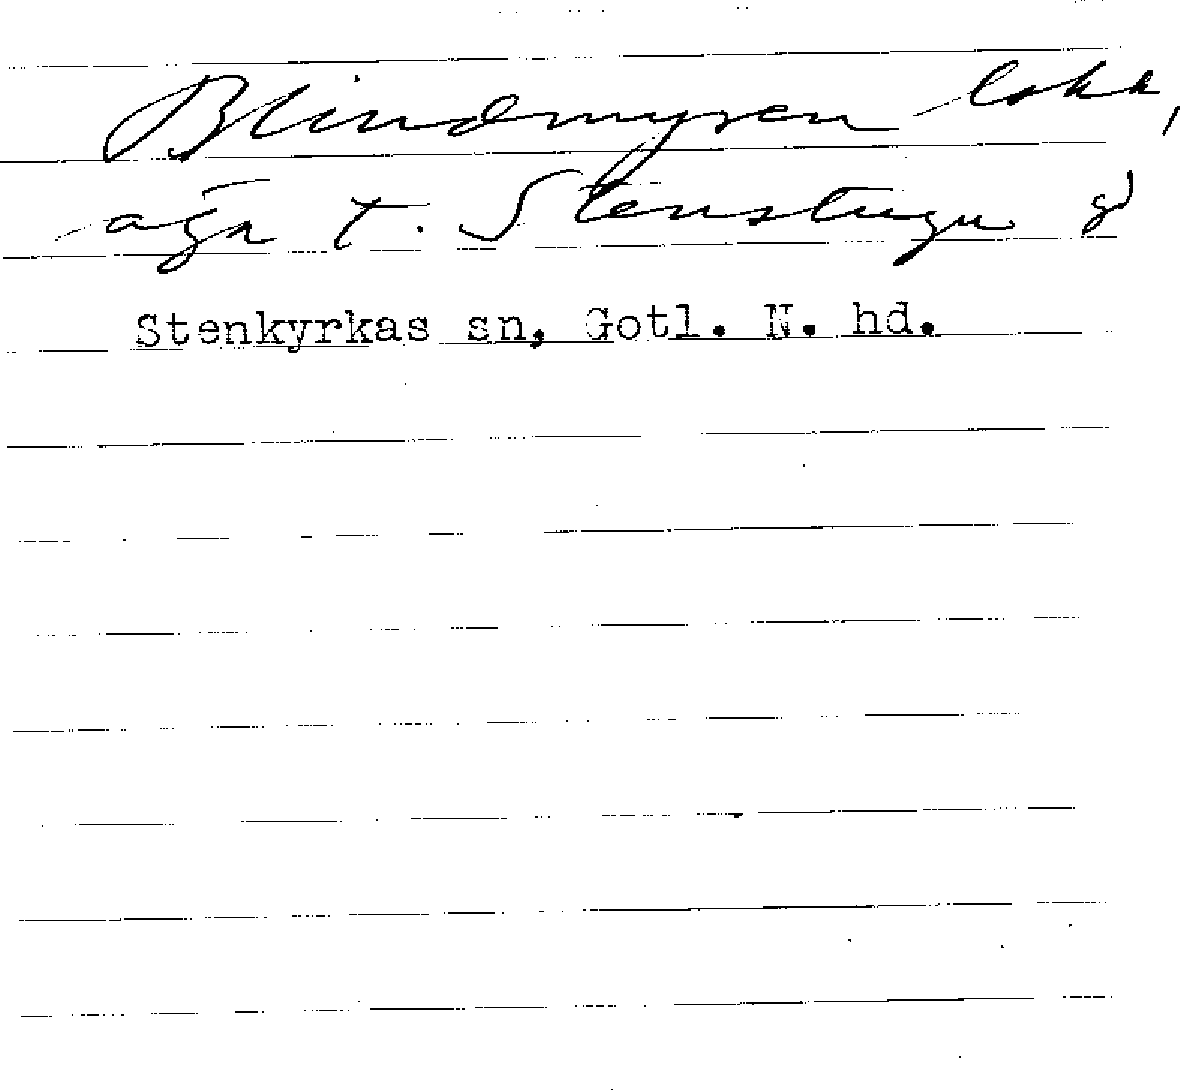 Blindmyren lokk,
äga t. Stenstugu gd
Stenkyrkas sn, Gotl. N. hd.